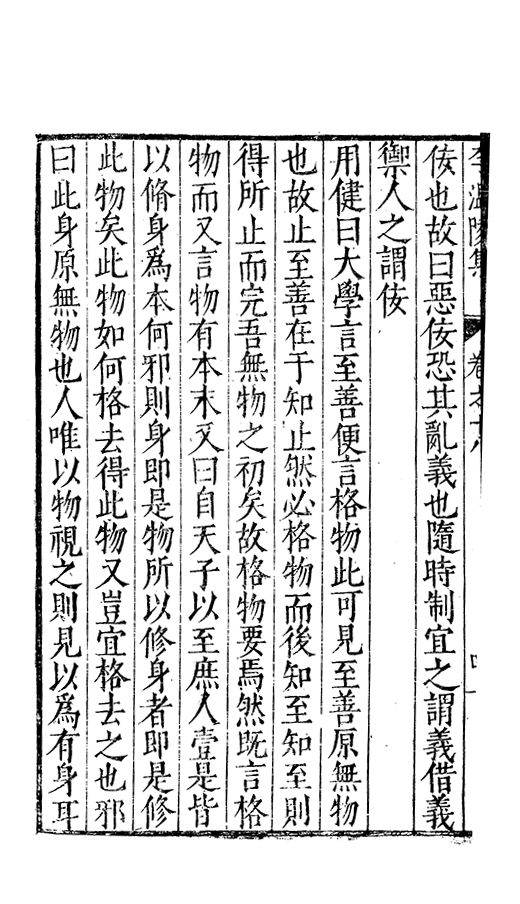 李溫陵集 卷之十八 四
佞也故曰惡佞恐其亂義也隨時制宜之謂義借義
禦人之謂佞
用健曰大學言至善便言格物此可見至善原無物
也故止至善在于知止然必格物而後知至知至則
得所止而完吾無物之初矣故格物要焉然既言格
物而又言物有本末又曰自天子以至庶人壹是皆
以脩身爲本何邪則身即是物所以修身者即是修
此物矣此物如何格去得此物又豈宜格去之也邪
曰此身原無物也人唯以物視之則見以爲有身耳